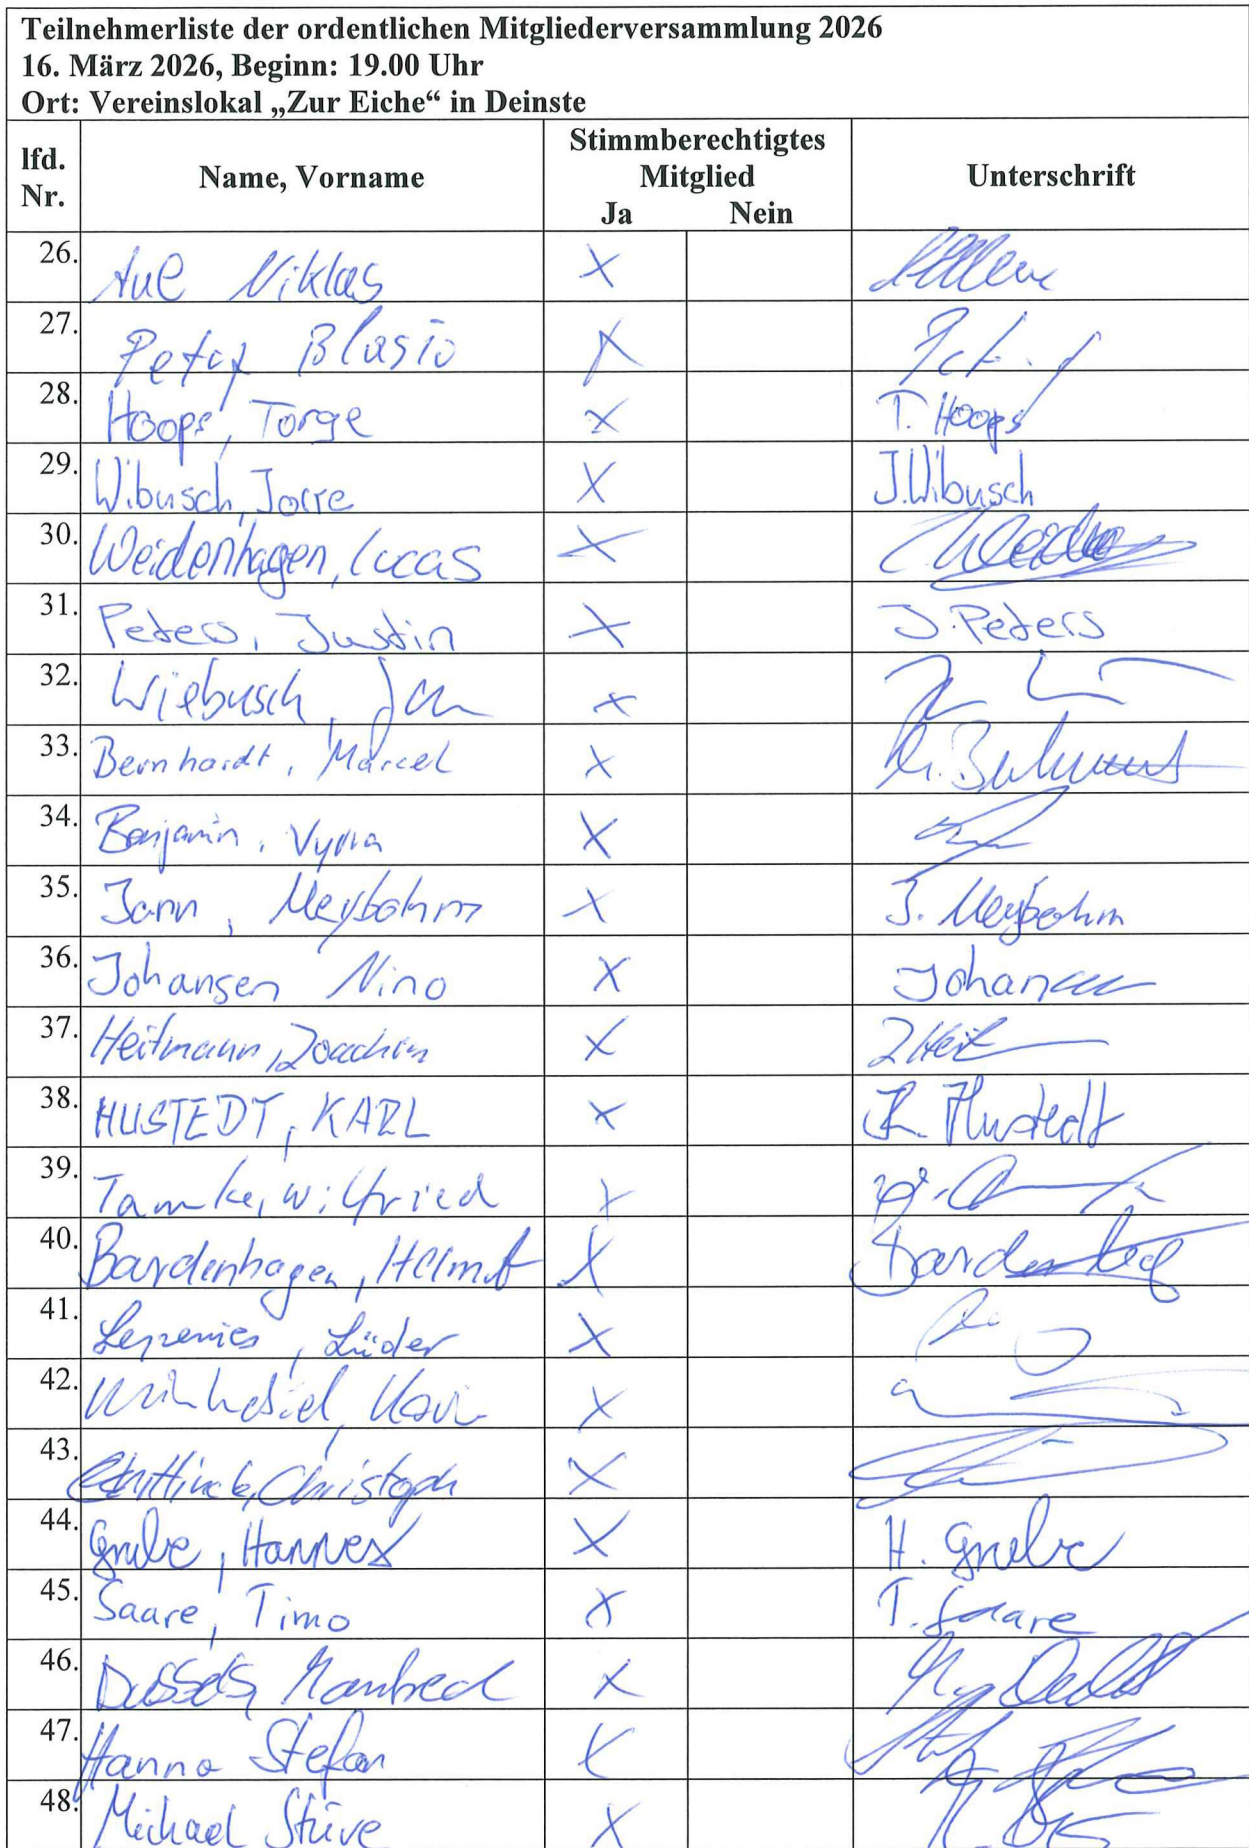 Teilnehmerliste der ordentlichen Mitgliederversammlung 2026
16. März 2026, Beginn: 19.00 Uhr
Ort: Vereinslokal „Zur Eiche“ in Deinste
lfd. Nr. Name, Vorname Stimmberechtigtes Mitglied Ja Nein Unterschrift
26. Niklas X
27. Blasio X
28. Hoops, Torge X T. Hoops
29. Wibusch, Jorre X J. Wibusch
30. Weidenhagen, Lucas X
31. Peters, Justin X J. Peters
32. Wiebusch, Jan X
33. Bernhardt, Marcel X
34. Benjamin, X
35. Jann, Meybohm X J. Meybohm
36. Johansen Nino X
37. Heitmann, Joachim X
38. HUSTEDT, KARL X K. Hustedt
39. Tamke, Wilfried X
40. Bardenhagen, Helmut X
41. Lüder X
42. X
43. Christoph X
44. Grube, Hannes X H. Grube
45. Saare, Timo X T. Saare
46. Manfred X
47. Stefan X
48. Michael Stüve X